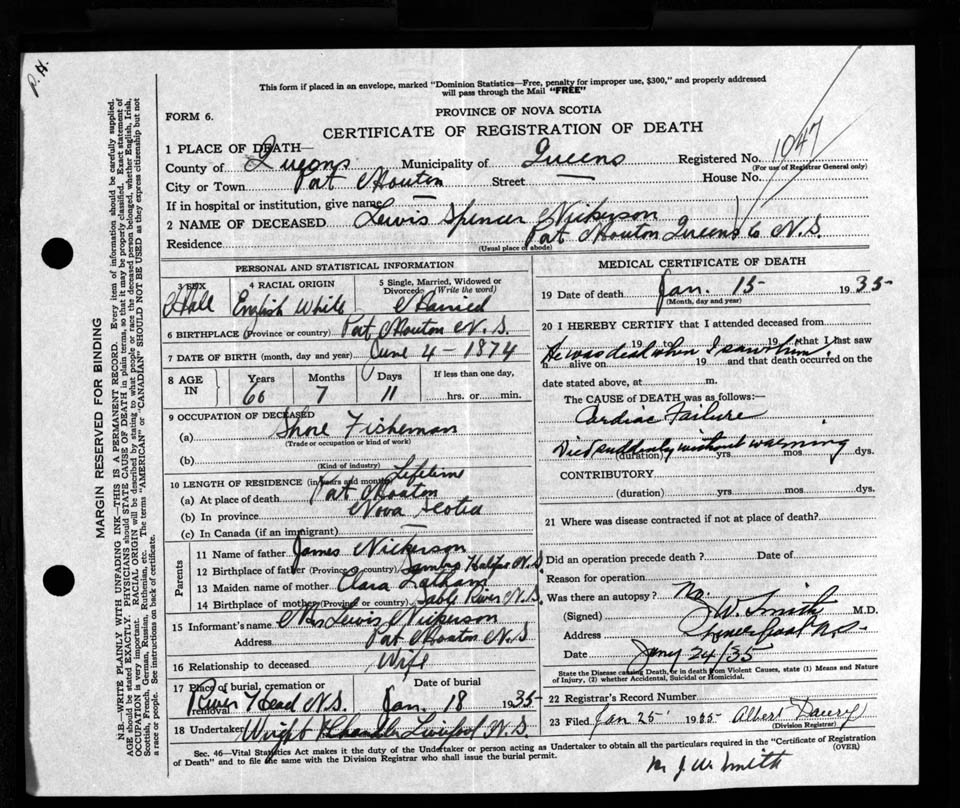 P. H.
This form if placed in an envelope, marked "Dominion Statistics—Free, penalty for improper use, $300," and properly addressed
will pass through the Mail "FREE"
FORM 6.
PROVINCE OF NOVA SCOTIA
CERTIFICATE OF REGISTRATION OF DEATH
1047
1 PLACE OF DEATH—
County of Queens Municipality of Queens Registered No.
(For use of Registrar General only)
City or Town Port Mouton Street — House No.
If in hospital or institution, give name —
2 NAME OF DECEASED Lewis Spencer Nickerson
Residence Port Mouton Queens Co N.S.
(Usual place of abode)
PERSONAL AND STATISTICAL INFORMATION
3 SEX Male
4 RACIAL ORIGIN English White
5 Single, Married, Widowed or Divorced (Write the word) Married
6 BIRTHPLACE (Province or country) Port Mouton N.S.
7 DATE OF BIRTH (month, day and year) June 4 - 1874
8 AGE IN Years 60 Months 7 Days 11 If less than one day, hrs. or min.
9 OCCUPATION OF DECEASED
(a) Shore Fisherman
(Trade or occupation or kind of work)
(b)
(Kind of industry)
10 LENGTH OF RESIDENCE (in years and months) Lifetime
(a) At place of death Port Mouton
(b) In province Nova Scotia
(c) In Canada (if an immigrant) —
Parents
11 Name of father James Nickerson
12 Birthplace of father (Province or country) Sambro Halifax N.S.
13 Maiden name of mother Clara Latham
14 Birthplace of mother (Province or country) Sable River N.S.
15 Informant's name Mrs Lewis Nickerson
Address Port Mouton N.S
16 Relationship to deceased Wife
17 Place of burial, cremation or removal River Head N.S. Date of burial Jan. 18 1935
18 Undertaker Wright Chandler Liverpool N.S.
MEDICAL CERTIFICATE OF DEATH
19 Date of death Jan. 15 1935
(Month, day and year)
20 I HEREBY CERTIFY that I attended deceased from
19 to 19 that I last saw
He was dead when I saw him!
h alive on 19 and that death occurred on the
date stated above, at m.
The CAUSE of DEATH was as follows:—
Cardiac Failure
Died suddenly without warning
(duration) yrs mos dys.
CONTRIBUTORY
(duration) yrs mos dys.
21 Where was disease contracted if not at place of death?
Did an operation precede death? Date of
Reason for operation
Was there an autopsy? No
(Signed) J.W. Smith M.D.
Address Liverpool N.S.
Date Jany 24/35
State the Disease causing Death, or in death from Violent Causes, state (1) Means and Nature
of Injury, (2) whether Accidental, Suicidal or Homicidal.
22 Registrar's Record Number
23 Filed Jan 25 1935 Albert
(Division Registrar)
Sec. 46—Vital Statistics Act makes it the duty of the Undertaker or person acting as Undertaker to obtain all the particulars required in the "Certificate of Registration
of Death" and to file the same with the Division Registrar who shall issue the burial permit.
(OVER)
J W Smith
MARGIN RESERVED FOR BINDING
N.B.—WRITE PLAINLY WITH UNFADING INK—THIS IS A PERMANENT RECORD. Every item of information should be carefully supplied.
AGE should be stated EXACTLY. PHYSICIANS should STATE CAUSE OF DEATH in plain terms, so that it may be properly classified. Exact statement of
OCCUPATION is very important. RACIAL ORIGIN will be described by stating to what people or race the deceased person belonged, whether English, Irish,
Scottish, French, German, Russian, Ruthenian, etc. The terms "AMERICAN" or "CANADIAN" SHOULD NOT BE USED as they express citizenship but not
a race or people. See instructions on back of certificate.